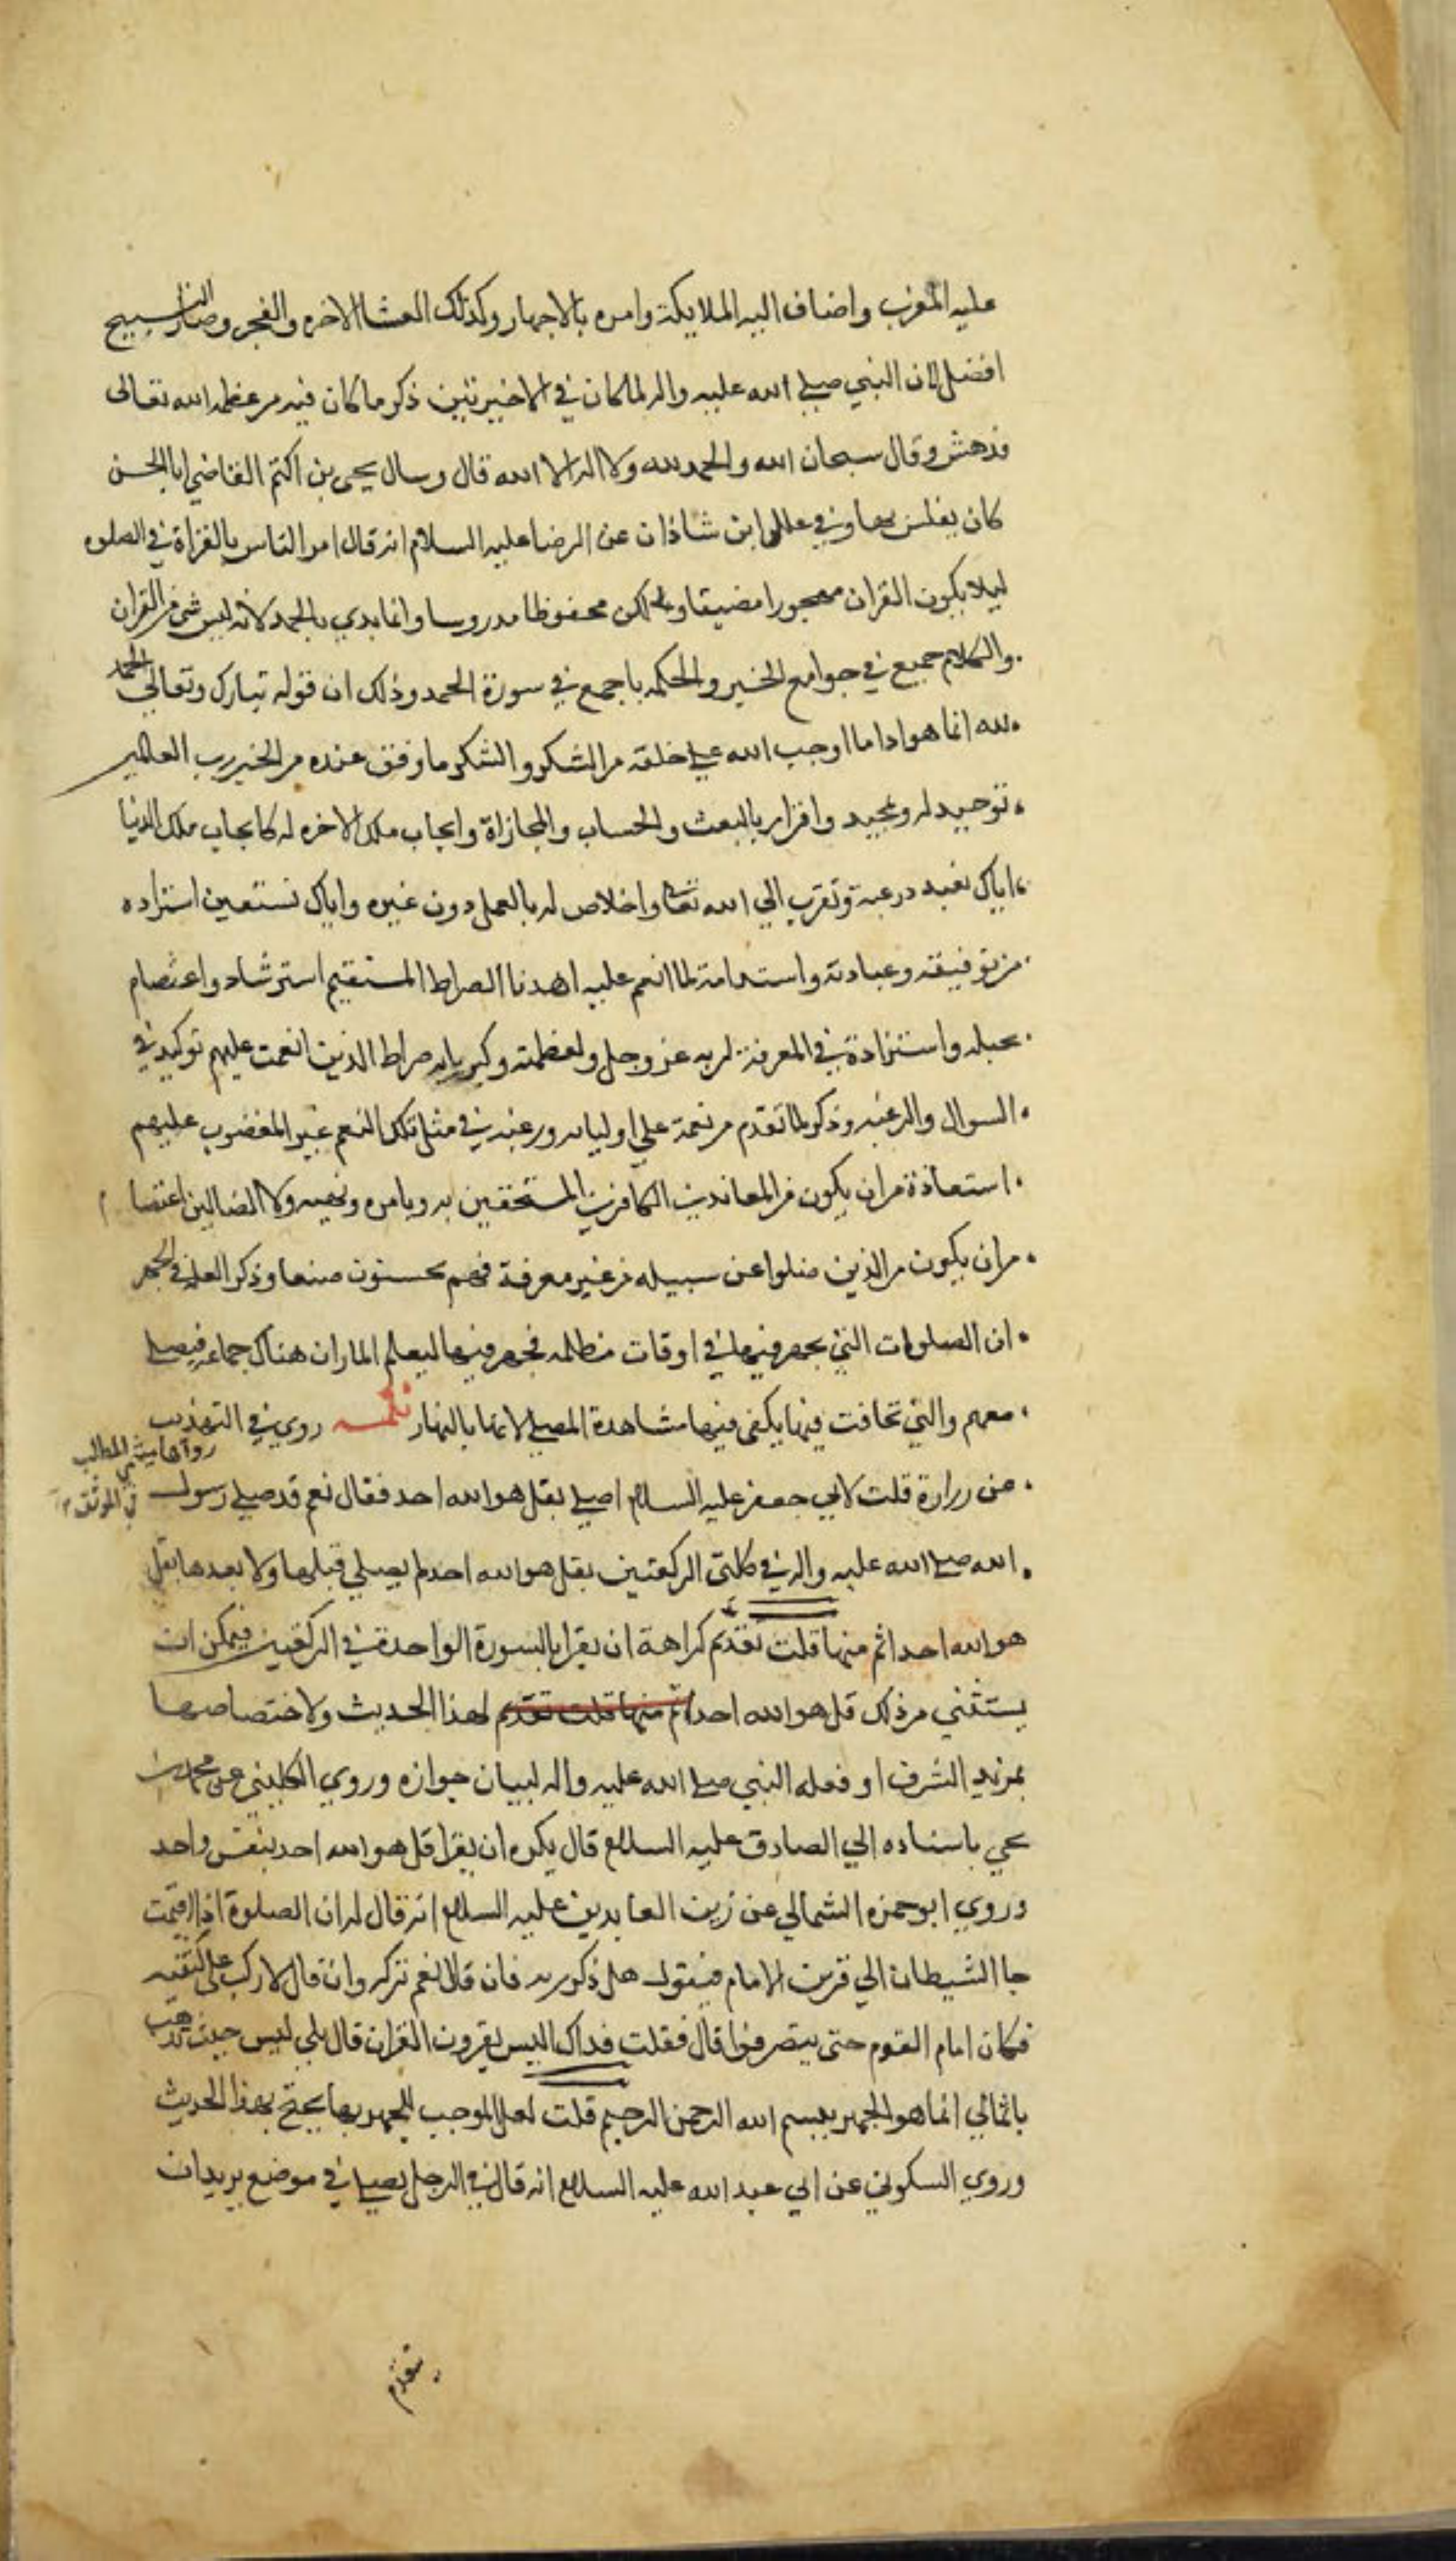 عليه المغرب واضاف اليه الملايكة وامره بالاجهار وكذلك العشا الاخره والفجر وصار التسبيح
افضل لان النبي صلى الله عليه واله لما كان في الاخيرتين ذكر ما كان فيه من عظمه الله تعالى
فدهش وقال سبحان الله والحمد لله ولا اله الا الله قال وسال يحيى بن اكثم القاضي ابا الحسن
كان يغلس بها وفي علل ابن شاذان عن الرضا عليه السلام انه قال امر الناس بالقراة في الصلوه
ليلا يكون القران مهجورا مضيقا وليكن محفوظا مدروسا وانما بدي بالحمد لانه ليس شي من القران
والكلام جميع في جوامع الخير والحكمه ما جمع في سورة الحمد وذلك ان قوله تبارك وتعالى الحمد
لله انما هو ادا ما اوجب الله على خلقه من الشكر والشكر ما وفق عنده من الخير رب العالمين
توحيد له وتمجيد واقرار بالبعث والحساب والمجازاة وايجاب ملك الاخره له كايجاب ملك الدنيا
اياك نعبد رغبة وتقرب الي الله تعالى واخلاص له بالعمل دون غيره واياك نستعين استزاده
من توفيقه وعبادته واستدامة لما انعم عليه اهدنا الصراط المستقيم استرشاد واعتصام
بحبله واستزادة في المعرفة لربه عز وجل ولعظمته وكبريايه صراط الذين انعمت عليهم توكيد في
السوال والرغبه وذكر لما تقدم من نعمة على اوليايه ورغبه في مثل تلك النعم غير المغضوب عليهم
استعاذة من ان يكون من المعاندين الكافرين المستخفين به وبامره ونهيه ولا الضالين اعتصا م
من ان يكون من الذين ضلوا عن سبيله من غير معرفة فهم يحسنون صنعا وذكر العله في الجهر
ان الصلوات التي يجهر فيها في اوقات مظلمه فجهر فيها ليعلم المار ان هناك جماعه فيصلي
معهم والتي تخافت فيها يكفي فيها مشاهدة المصلي لانها بالنهار تتمه روي في التهذيب
رواها في المطالب
في الموثق
عن زرارة قلت لابي جعفر عليه السلام اصلي بقل هو الله احد فقال نعم قد صلى رسول
الله صلى الله عليه واله في كلتي الركعتين بقل هو الله احد لم يصلي قبلها ولا بعدها بقل
هو الله احد اتم منها قلت تقدم كراهة ان يقرا بالسورة الواحدة في الركعتين فيمكن ان
يستثني من ذلك قل هو الله احد اتم منها قلت تقدم لهذا الحديث ولاختصاصها
بمزيد الشرف او فعله النبي صلى الله عليه واله لبيان جوازه وروي الكليني عن محمد بن
يحيي باسناده الي الصادق عليه السلام قال يكره ان يقرا قل هو الله احد بنفس واحد
وروي ابو حمزه الثمالي عن زين العابدين عليه السلام انه قال له ان الصلوة اذا اقيمت
جا الشيطان الي قرين الامام فيقول هل ذكر ربه فان قال نعم تركه وان قال لا ركب على كتفيه
فكان امام القوم حتى ينصرفوا قال فقلت فداك اليس يقرون القران قال بلي ليس حيث تذهب
يا ثمالي انما هو الجهر ببسم الله الرحمن الرحيم قلت لعل الموجب للجهر بها يحتج بهذا الحديث
وروي السكوني عن ابي عبد الله عليه السلام انه قال في الرجل يصلي في موضع يريد ان
يتقدم